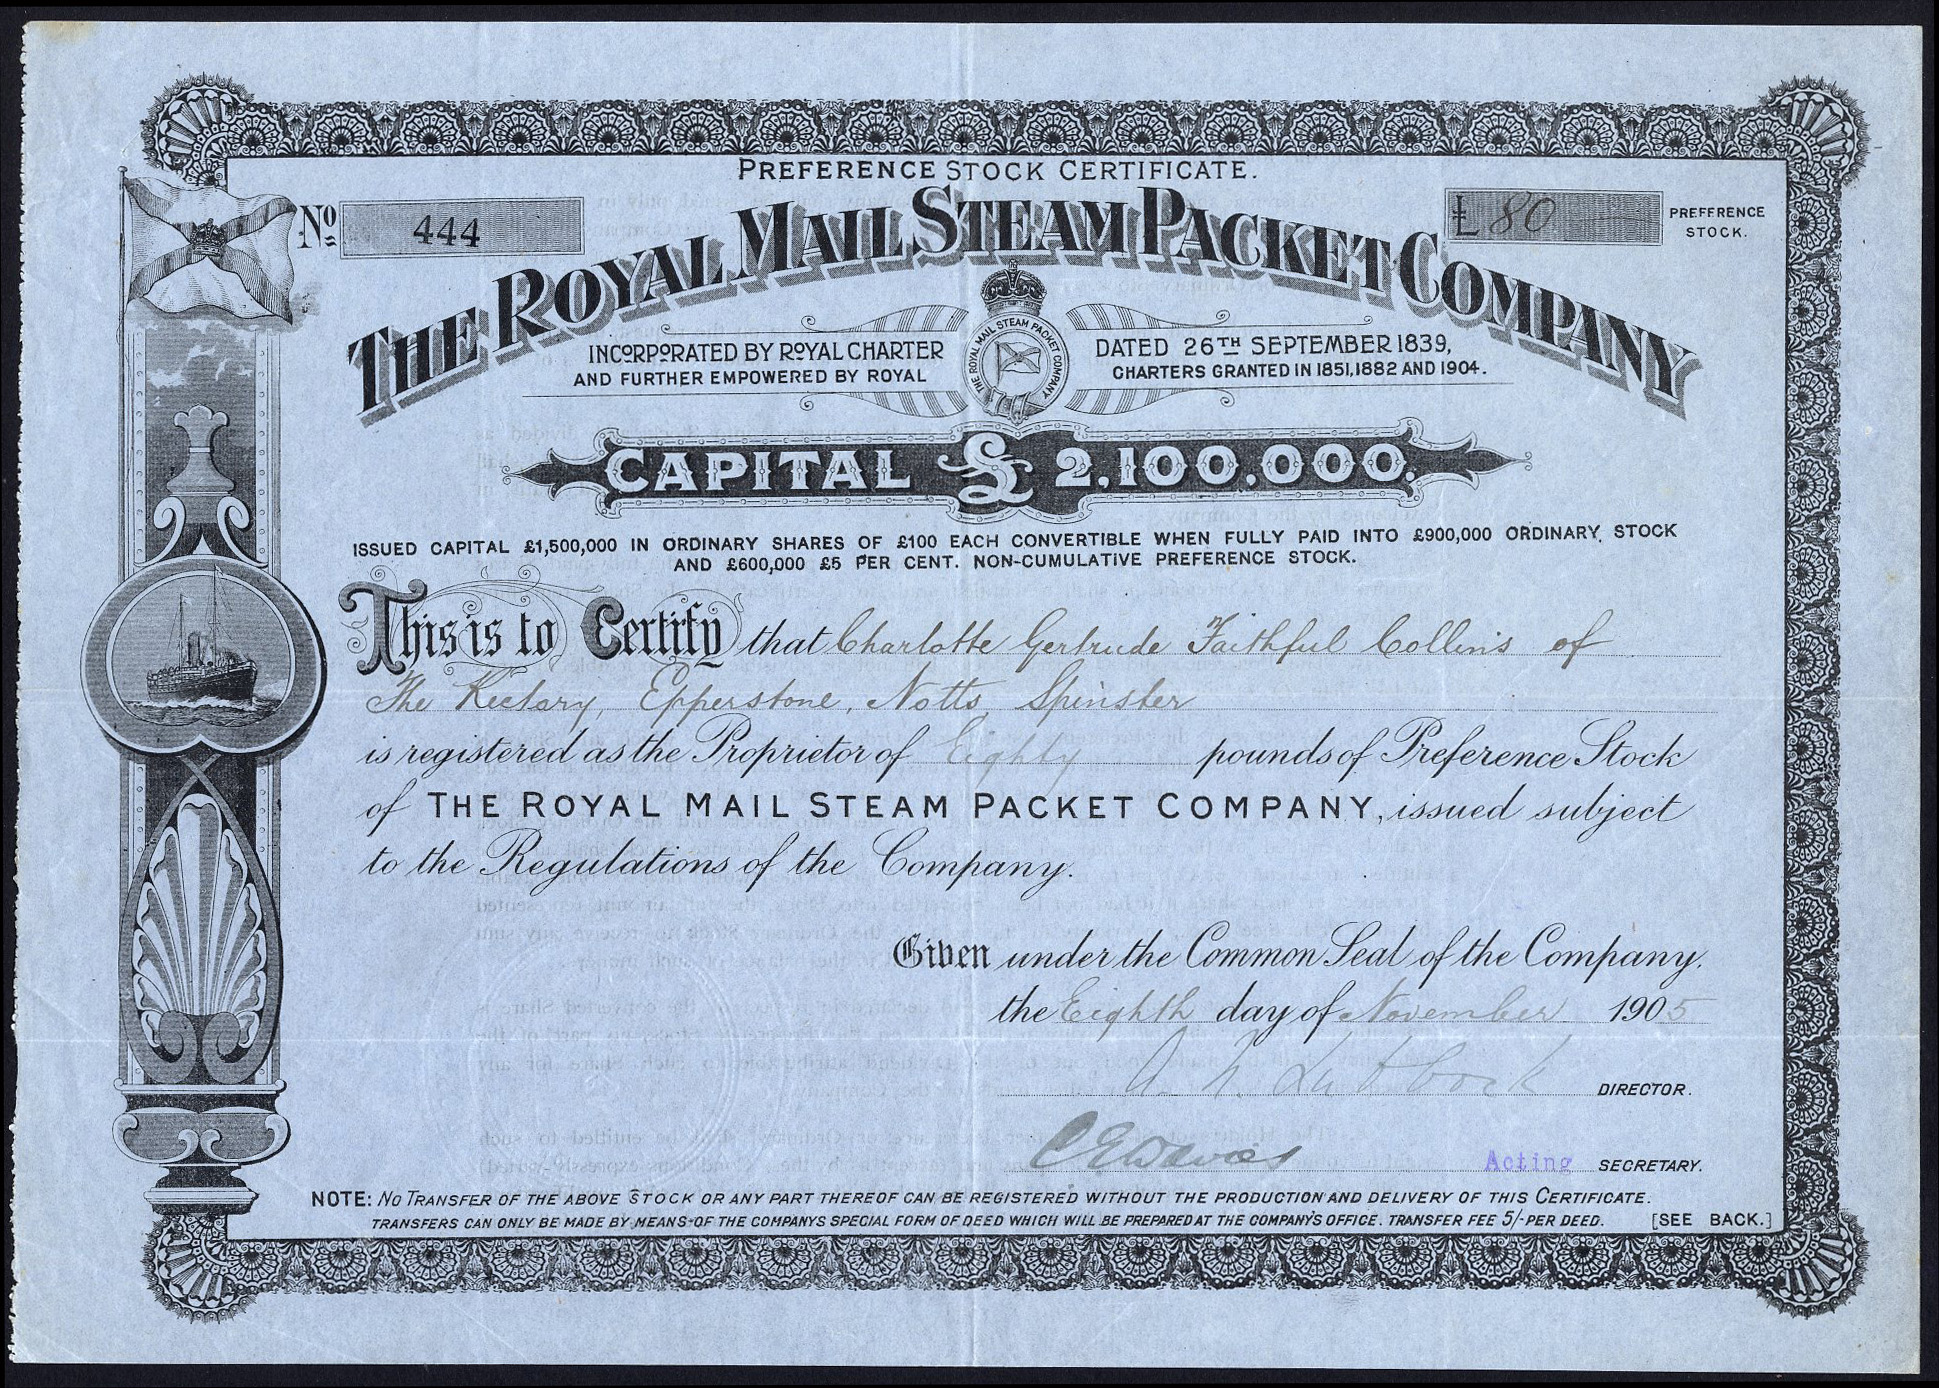 PREFERENCE STOCK CERTIFICATE.
No 444
£ 80
PREFERENCE STOCK.
THE ROYAL MAIL STEAM PACKET COMPANY
INCORPORATED BY ROYAL CHARTER DATED 26TH SEPTEMBER 1839,
AND FURTHER EMPOWERED BY ROYAL CHARTERS GRANTED IN 1851, 1882 AND 1904.
THE ROYAL MAIL STEAM PACKET COMPANY
CAPITAL £2,100,000.
ISSUED CAPITAL £1,500,000 IN ORDINARY SHARES OF £100 EACH CONVERTIBLE WHEN FULLY PAID INTO £900,000 ORDINARY, STOCK
AND £600,000 £5 PER CENT. NON-CUMULATIVE PREFERENCE STOCK.
This is to Certify that Charlotte Gertrude Faithful Collins of
The Rectory, Epperstone, Notts, Spinster
is registered as the Proprietor of Eighty pounds of Preference Stock
of THE ROYAL MAIL STEAM PACKET COMPANY, issued subject
to the Regulations of the Company.
Given under the Common Seal of the Company,
the Eighth day of November 1905
DIRECTOR.
C E Davies Acting SECRETARY.
NOTE: NO TRANSFER OF THE ABOVE STOCK OR ANY PART THEREOF CAN BE REGISTERED WITHOUT THE PRODUCTION AND DELIVERY OF THIS CERTIFICATE.
TRANSFERS CAN ONLY BE MADE BY MEANS OF THE COMPANYS SPECIAL FORM OF DEED WHICH WILL BE PREPARED AT THE COMPANY'S OFFICE. TRANSFER FEE 5/- PER DEED. [SEE BACK.]